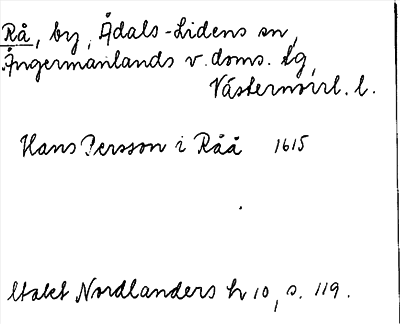 Rå, by, Ådals-Lidens sn,
Ångermanlands v. doms. lg,
Västernorrl. l.
Hans Persson i Råå 1615
Utdt Nordlanders h 10, s. 119.